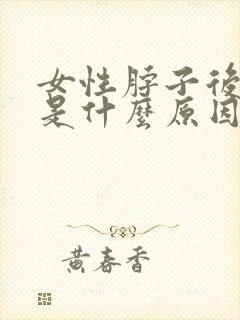 女性脖子後
是什麼原因
黃春香